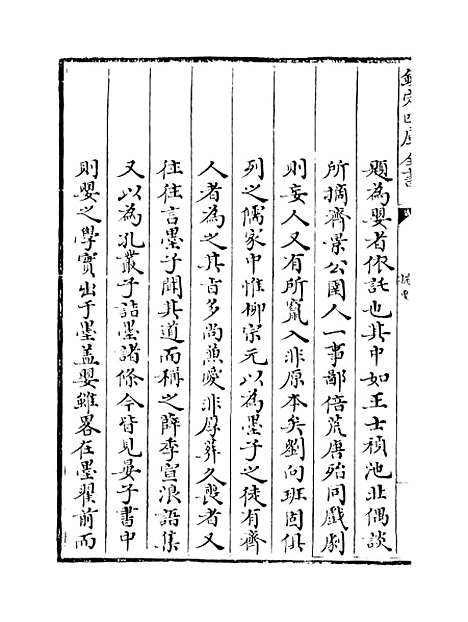 欽定四庫全書
題為嬰者依託也其中如王士禎池北偶談
所摘齊景公圉人一事鄙倍荒唐殆同戲劇
則妄人又有所竄入非原本矣劉向班固俱
列之儒家中惟柳宗元以為墨子之徒有齊
人者為之其言多尚兼愛非厚葬久喪者又
往往言墨子聞其道而稱之薛季宣浪語集
又以為孔叢子詰墨諸條今皆見晏子書中
則嬰之學實出于墨蓋嬰雖畧在墨翟前而